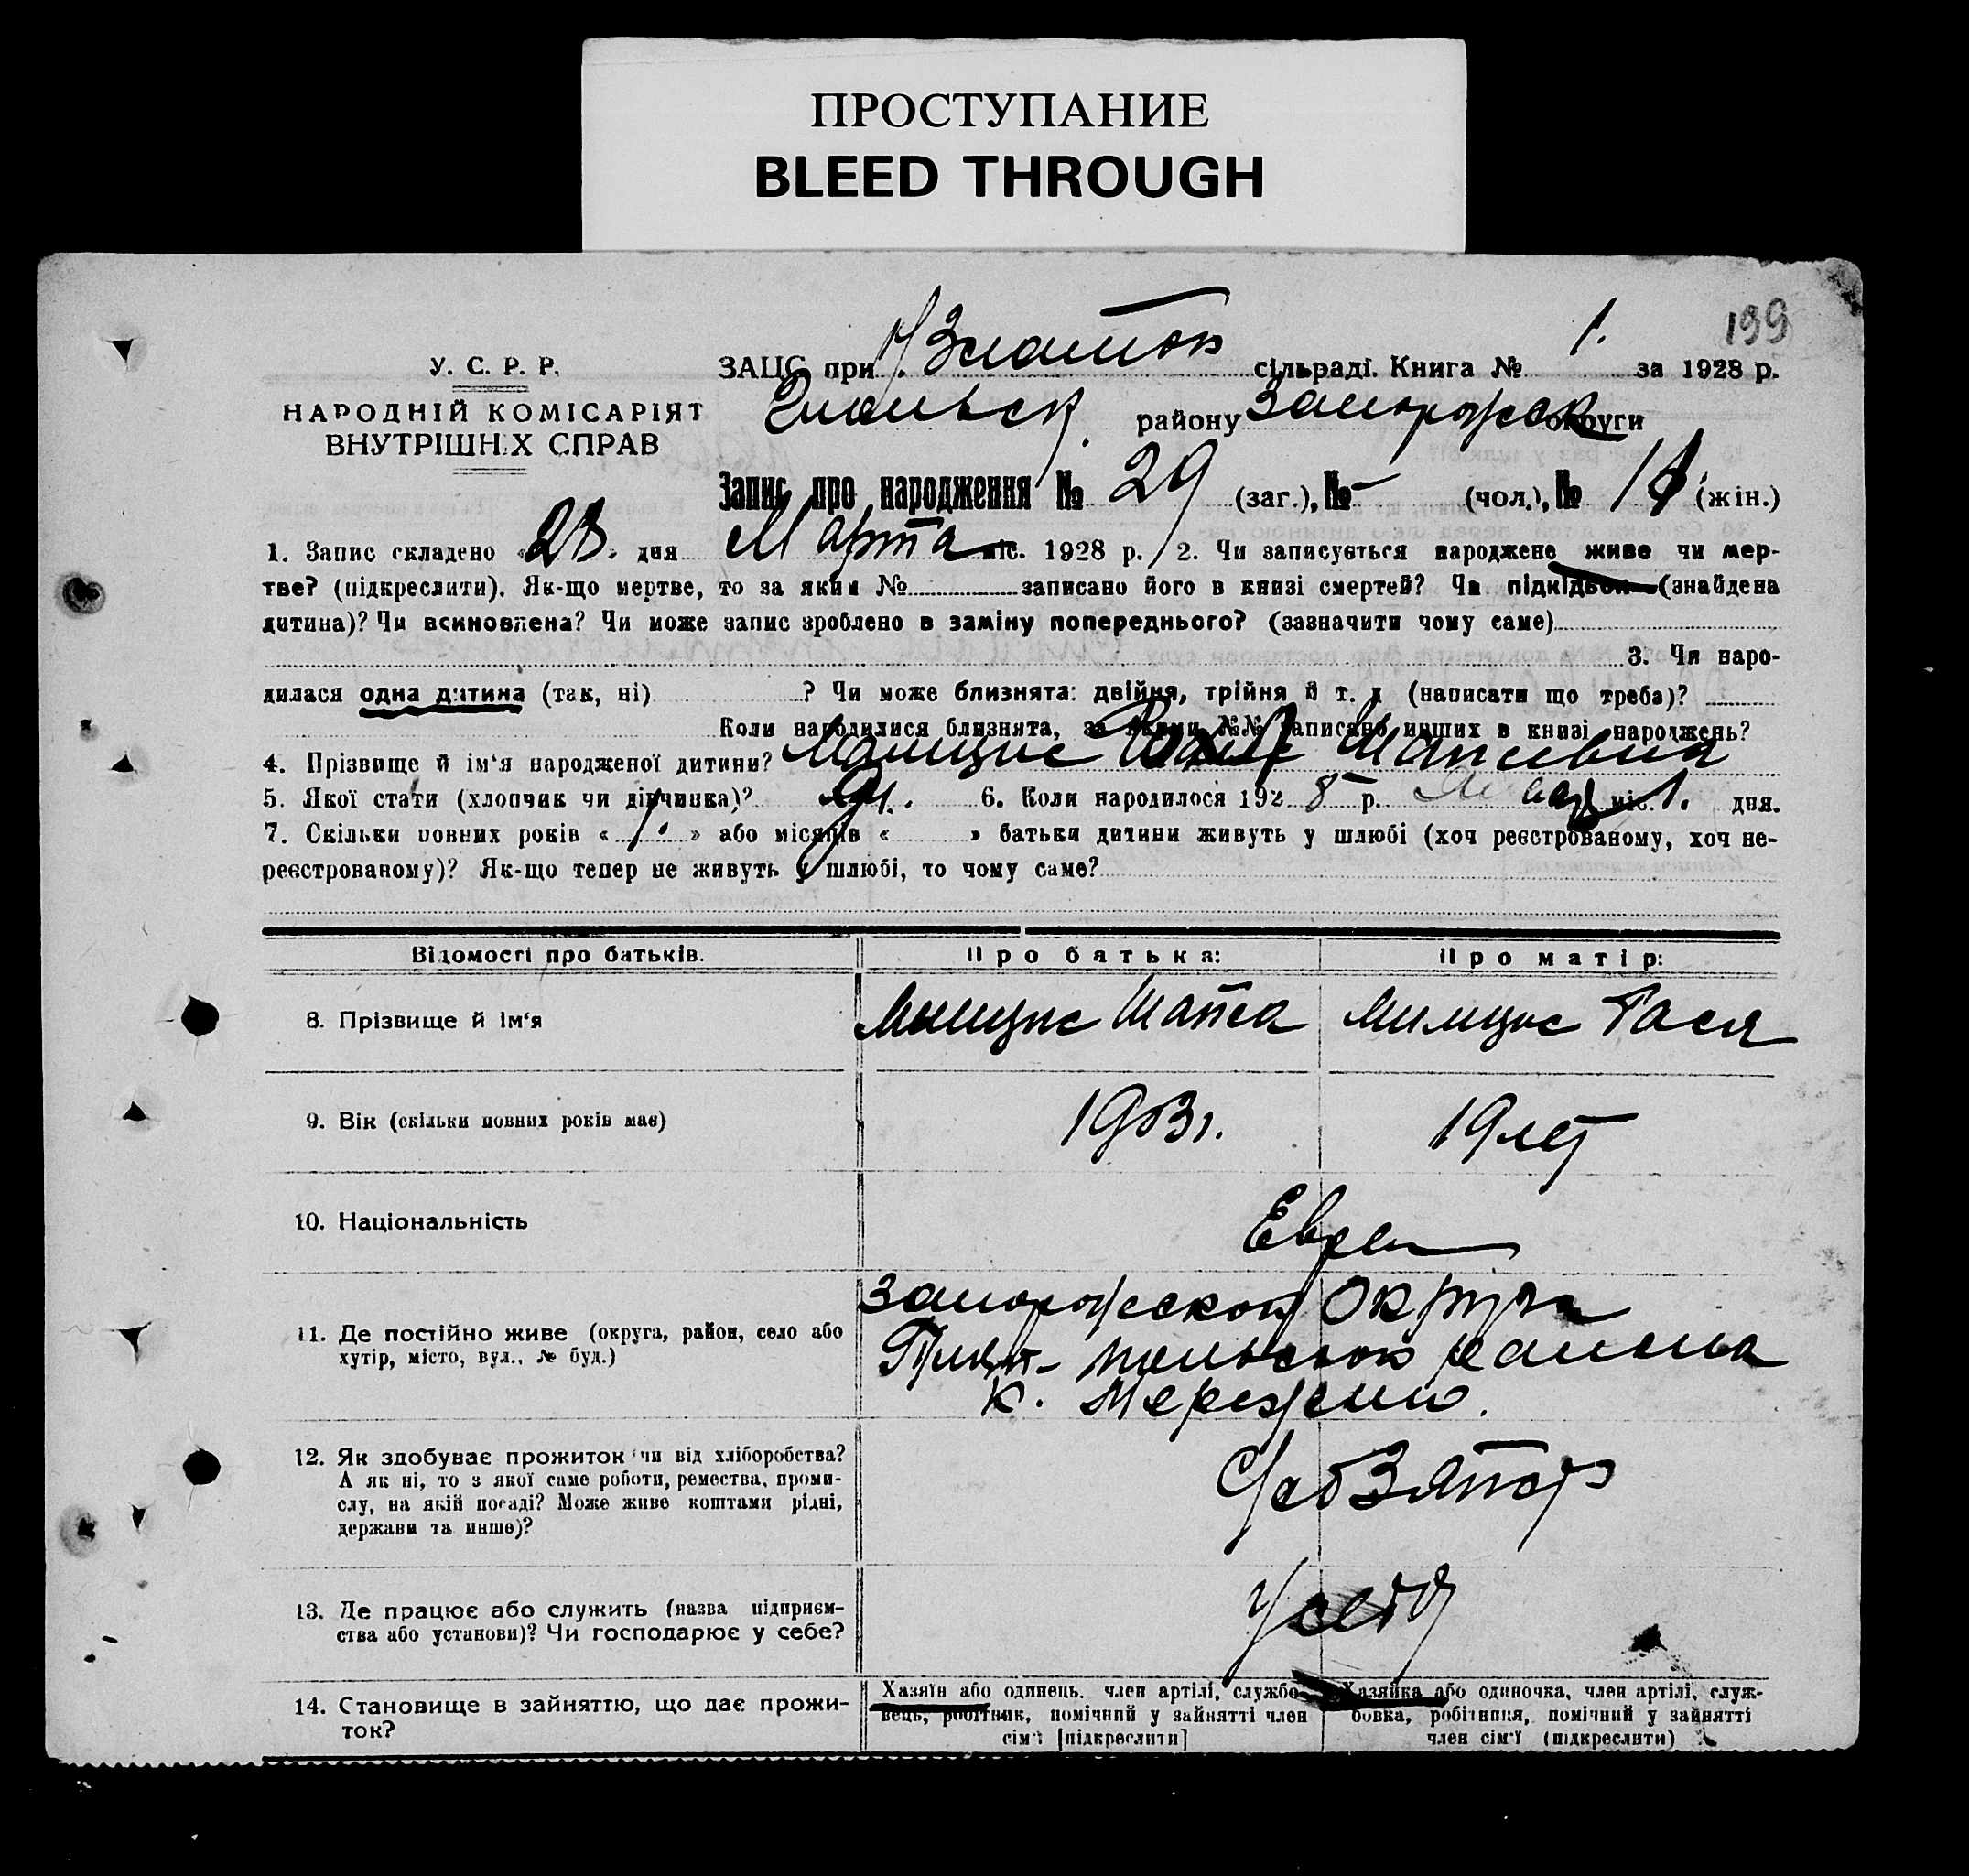 ПРОСТУПАНИЕ
BLEED THROUGH
199
У. С. Р. Р.
НАРОДНІЙ КОМІСАРІЯТ
ВНУТРІШНІХ СПРАВ
ЗАЦС при сільраді. Книга № 1. за 1928 р.
району Запорожск округи
Запис про народження № 29 (заг.), № - (чол.), № (жін.)
1. Запис складено «28» дня Марта міс. 1928 р. 2. Чи записується народжене живе чи мер-
тве? (підкреслити). Як-що мертве, то за яким № записано його в книзі смертей? Чи підкідьок (знайдена
дитина)? Чи всиновлена? Чи може запис зроблено в заміну попереднього? (зазначити чому саме)
3. Чи наро-
дилася одна дитина (так, ні) ? Чи може близнята: двійня, трійня й т. д (написати що треба)?
Коли народилися близнята, за якими №№ записано инших в книзі народжень?
4. Прізвище й ім‘я народженої дитини?
5. Якої стати (хлопчик чи дівчинка)? 6. Коли народилося 1928 р. міс. 1. дня.
7. Скільки повних років « » або місяців « » батьки дитини живуть у шлюбі (хоч реєстрованому, хоч не-
реєстрованому)? Як-що тепер не живуть у шлюбі, то чому саме?
Відомості про батьків. Про батька: Про матір:
8. Прізвище й ім‘я
9. Вік (скільки повних років має) 1903г. 19 лет
10. Національність Евреи
11. Де постійно живе (округа, район, село або
хутір, місто, вул., № буд.)
Запорожской Округи
района
12. Як здобуває прожиток чи від хліборобства?
А як ні, то з якої саме роботи, ремества, проми-
слу, на якій посаді? Може живе коштами рідні,
держави та инше)?
13. Де працює або служить (назва підприєм-
ства або установи)? Чи господарює у себе?
У себя
14. Становище в зайняттю, що дає прожи-
ток?
Хазяїн або одинець, член артілі, службо-
вець, робітник, помічний у зайнятті член
сім‘ї [підкреслити]
Хазяйка або одиночка, член артілі, служ-
бовка, робітниця, помічний у зайнятті
член сім‘ї (підкреслити)